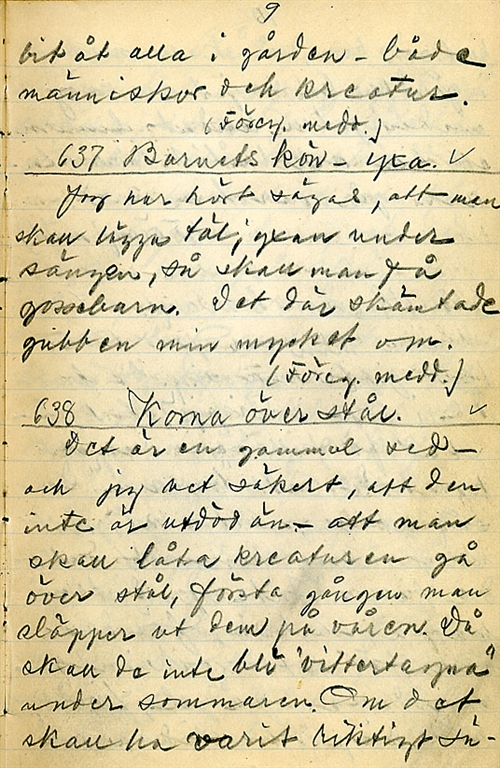 9
bit åt alla i gården - både
människor och kreatur.
(Föreg. medd.)
637 Barnets kön - yxa. ✓
Jag har hört sägas, att man
skall lägga täljyxan under
sängen, så skall man få
gossebarn. Det där skämtade
gubben min mycket om.
(Föreg. medd.)
638 Korna över stål. ✓
Det är en gammal sed -
och jag vet säkert, att den
inte är utdöd än - att man
skall låta kreaturen gå
över stål, första gången man
släpper ut dem på våren. Då
skall de inte bli "vittertagna"
under sommaren. Om det
skall ha varit riktigt sä-